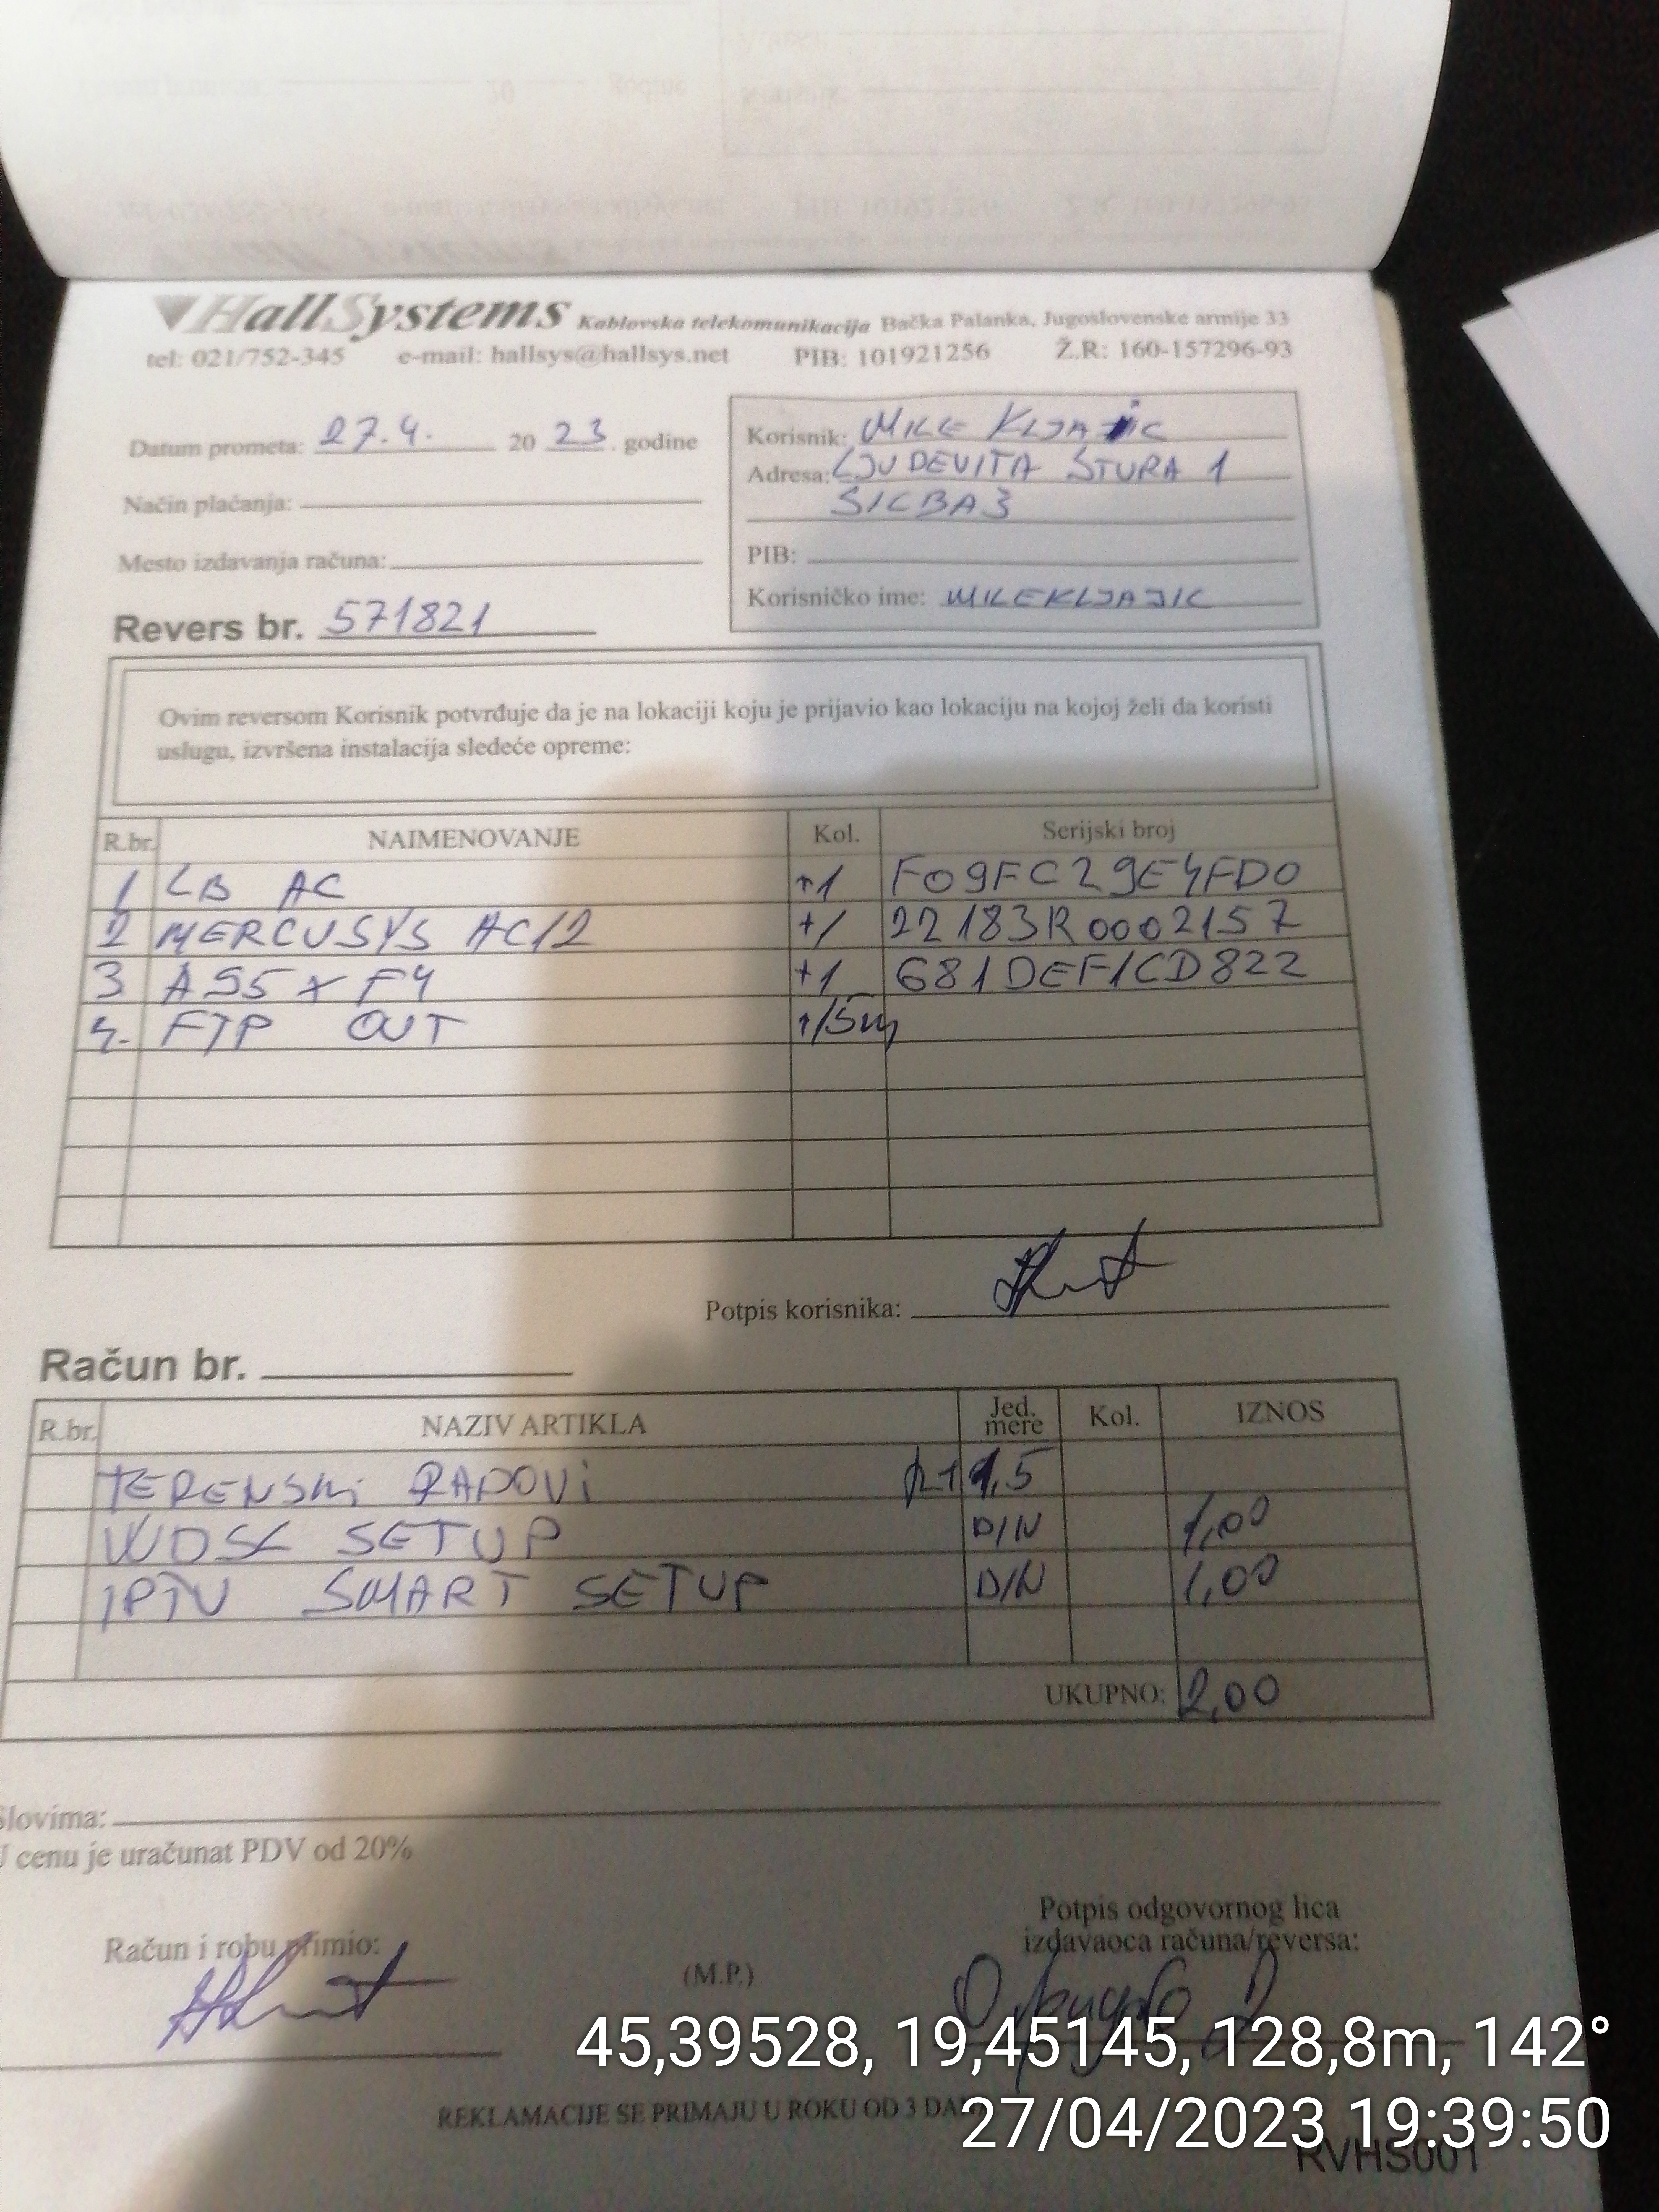 HallSystems Kablovska telekomunikacija Bačka Palanka, Jugoslovenske armije 33
tel: 021/752-345 e-mail: hallsys@hallsys.net PIB: 101921256 Ž.R: 160-157296-93
Datum prometa: 27.4. 20 23. godine
Način plaćanja:
Mesto izdavanja računa:
Revers br. 571821
Korisnik: MILE KLJAJIC
Adresa: LJUDEVITA ŠTURA 1
SILBAŠ
PIB:
Korisničko ime: MILEKLJAJIC
Ovim reversom Korisnik potvrđuje da je na lokaciji koju je prijavio kao lokaciju na kojoj želi da koristi
uslugu, izvršena instalacija sledeće opreme:
R.br. NAIMENOVANJE Kol. Serijski broj
1 LB AC +1 F09FC29E4FD0
2 MERCUSYS AC12 +1 22183R0002157
3 A95X F4 +1 681DEF1CD822
4. FTP OUT +15m
Potpis korisnika:
Račun br.
R.br. NAZIV ARTIKLA Jed. mere Kol. IZNOS
TERENSKI RADOVI 1,5
WDSL SETUP DIN 1,00
IPTV SMART SETUP DIN 1,00
UKUPNO: 2,00
Slovima:
U cenu je uračunat PDV od 20%
Račun i robu primio:
(M.P.)
Potpis odgovornog lica
izdavaoca računa/reversa:
REKLAMACIJE SE PRIMAJU U ROKU OD 3 DA
RVHS001
45,39528, 19,45145, 128,8m, 142°
27/04/2023 19:39:50